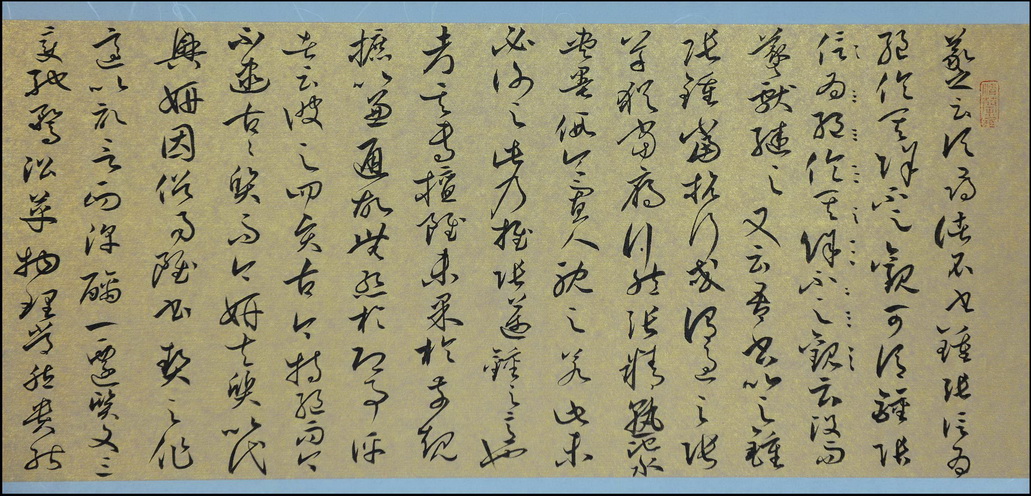 羲之云頃尋諸名書鍾張信為
絕倫其餘不足觀可謂鍾張
信為絕倫其餘不足觀云沒而
羲獻繼之又云吾書比之鍾
張鍾當抗行或謂過之張
草猶當雁行然張精熟池水
盡墨假令寡人耽之若此未
必謝之此乃推張邁鍾之意也
考其專擅雖未果於前規
摭以兼通故無慚於即事評
者云彼之四賢古今特絕而今
不逮古々質而今妍夫質以代
興妍因俗易雖書契之作
適以記言而淳醨一遷質文三
變馳騖沿革物理常然貴能